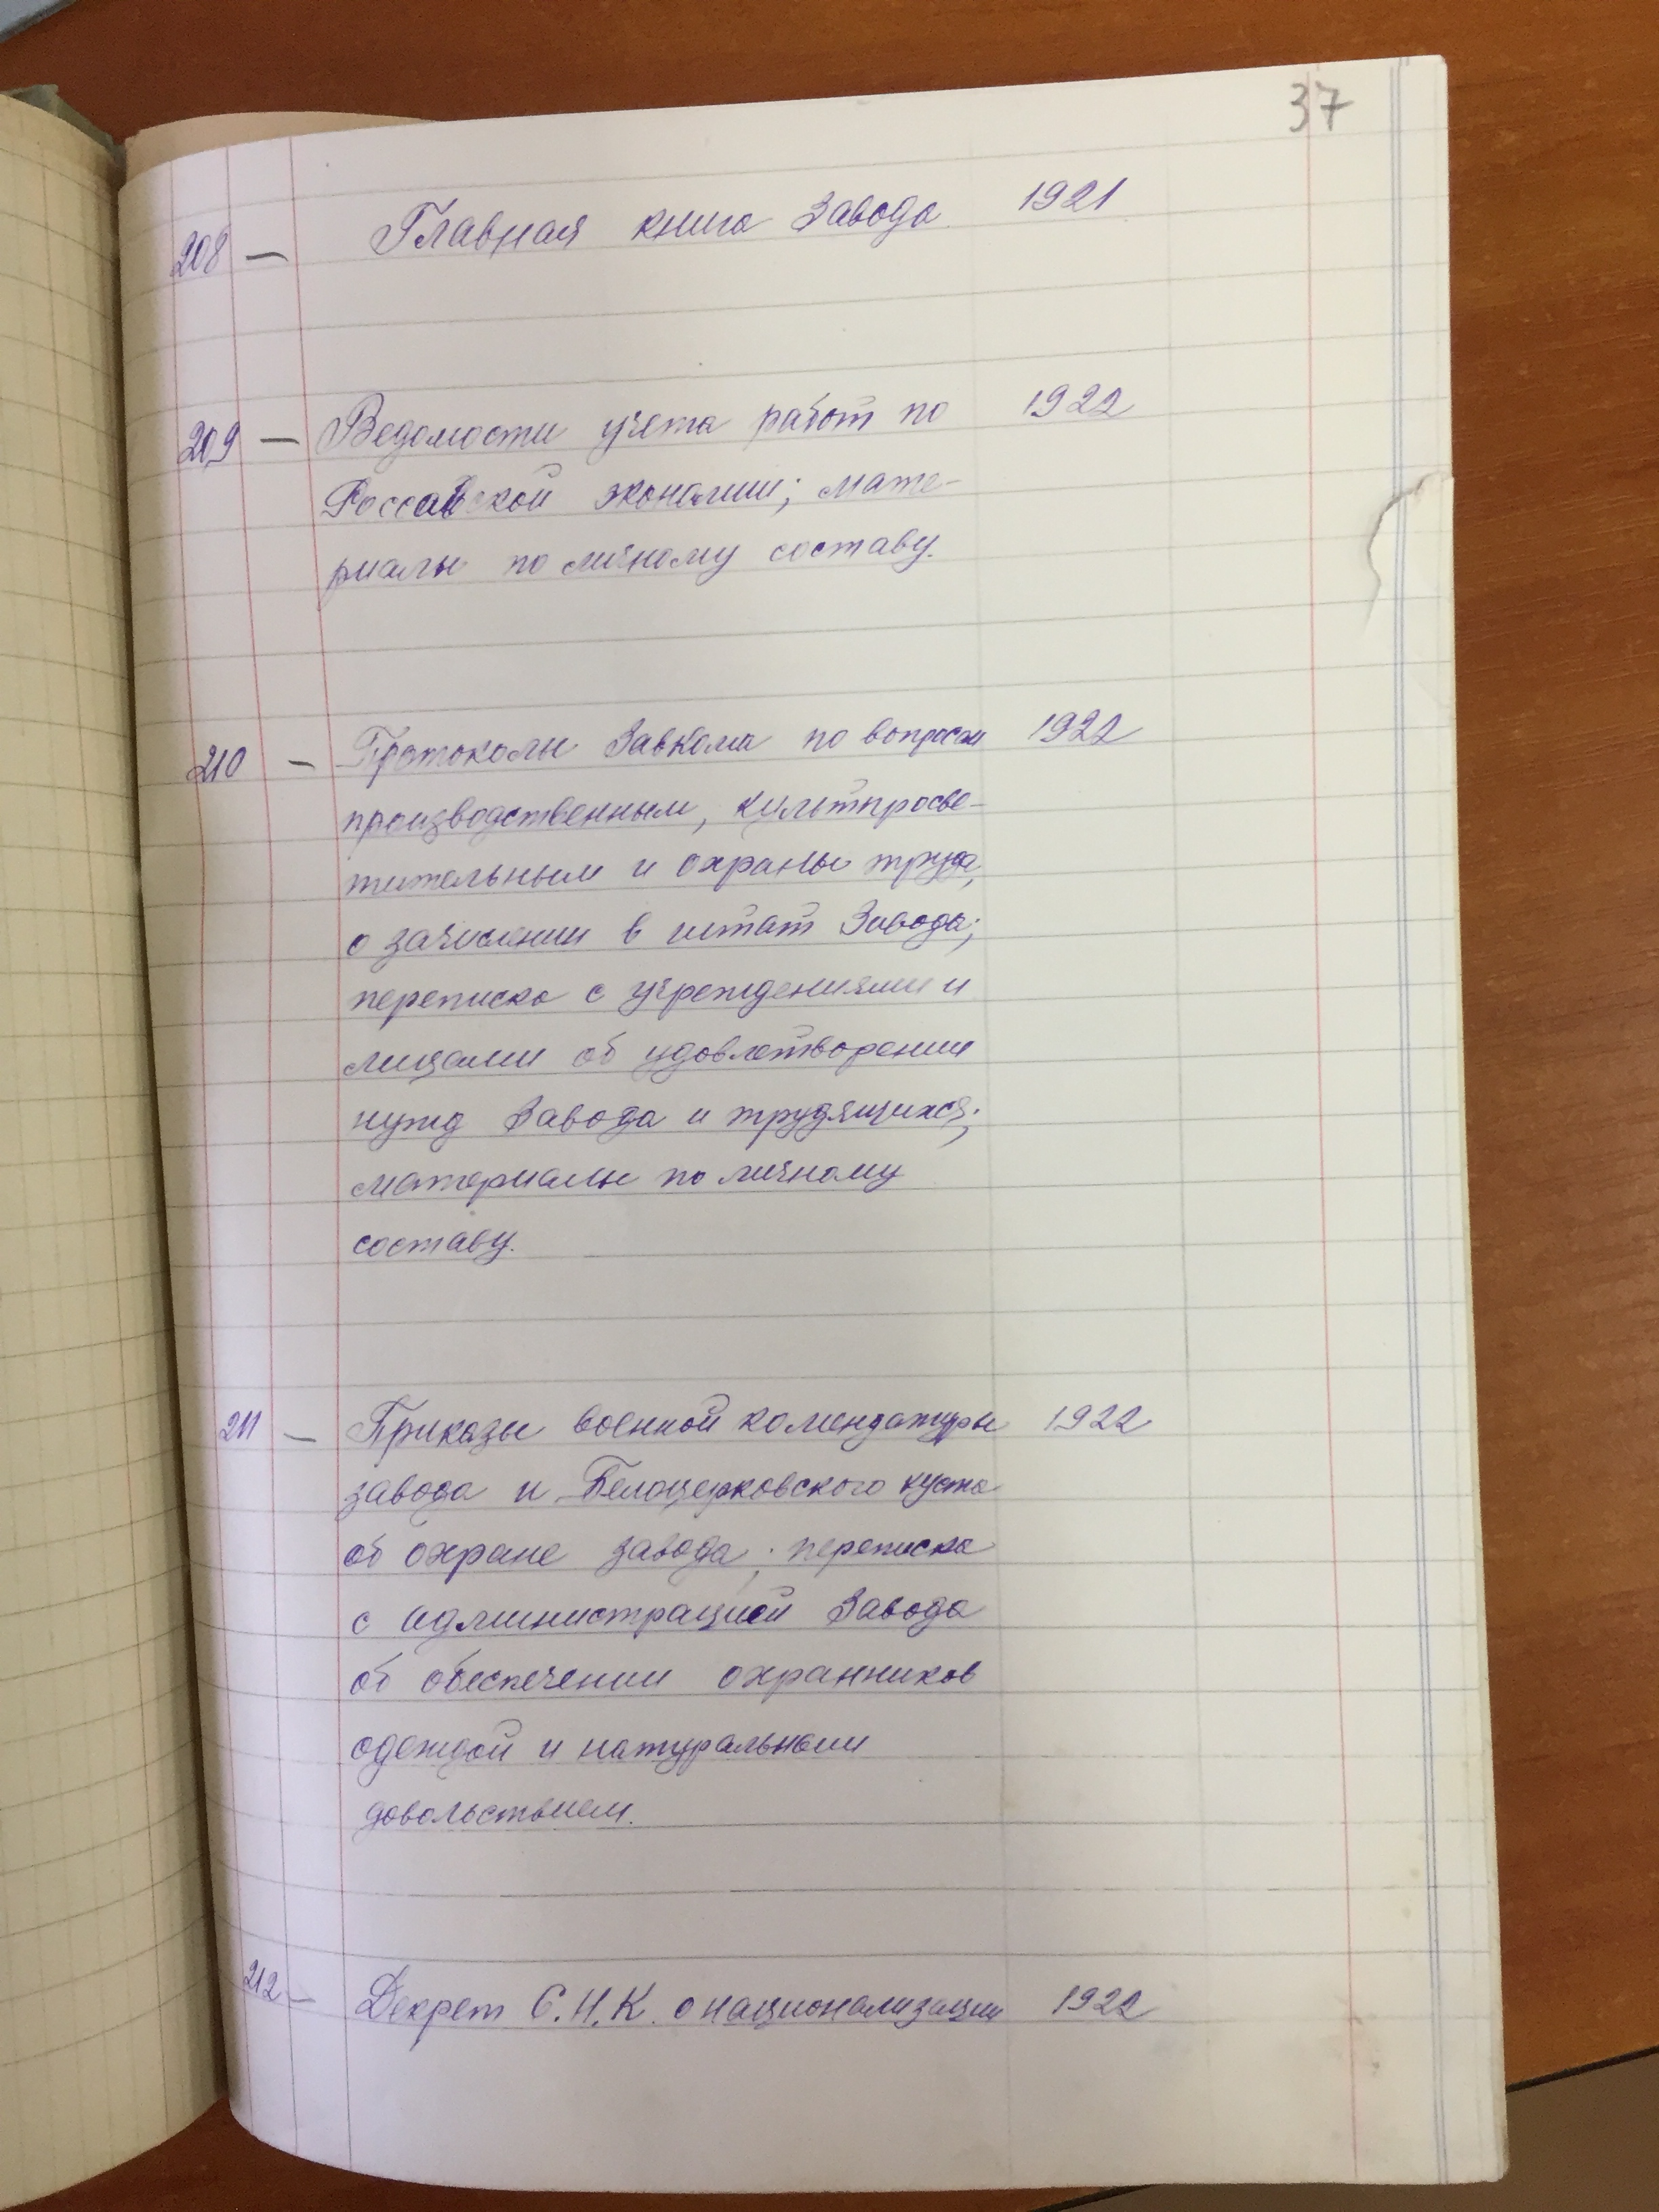 37
208 — Главная книга Завода. 1921
209 — Ведомости учета работ по 1922
Россавской экономии; мате-
риалы по личному составу.
210 — Протоколы Завкома по вопросам 1922
производственным, культпросве-
тительным и охраны труда,
о зачислении в штат Завода;
переписка с учреждениями и
лицами об удовлетворении
нужд Завода и трудящихся;
материалы по личному
составу.
211 — Приказы военной комендатуры 1922
завода и Белоцерковского куста
об охране завода; переписка
с администрацией Завода
об обеспечении охранников
одеждой и натуральным
довольствием.
212 — Декрет С.Н.К. о национализации 1922